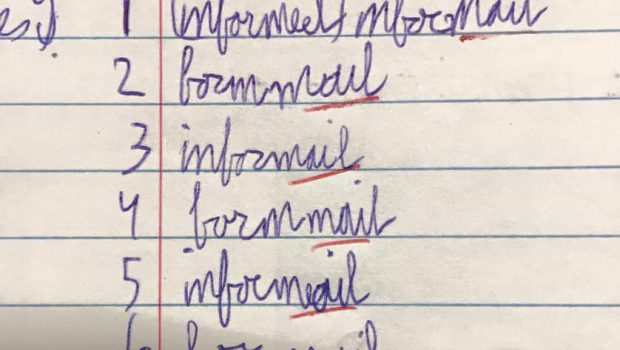 1 informeel/informail
2 formmail
3 informail
4 formmail
5 informail